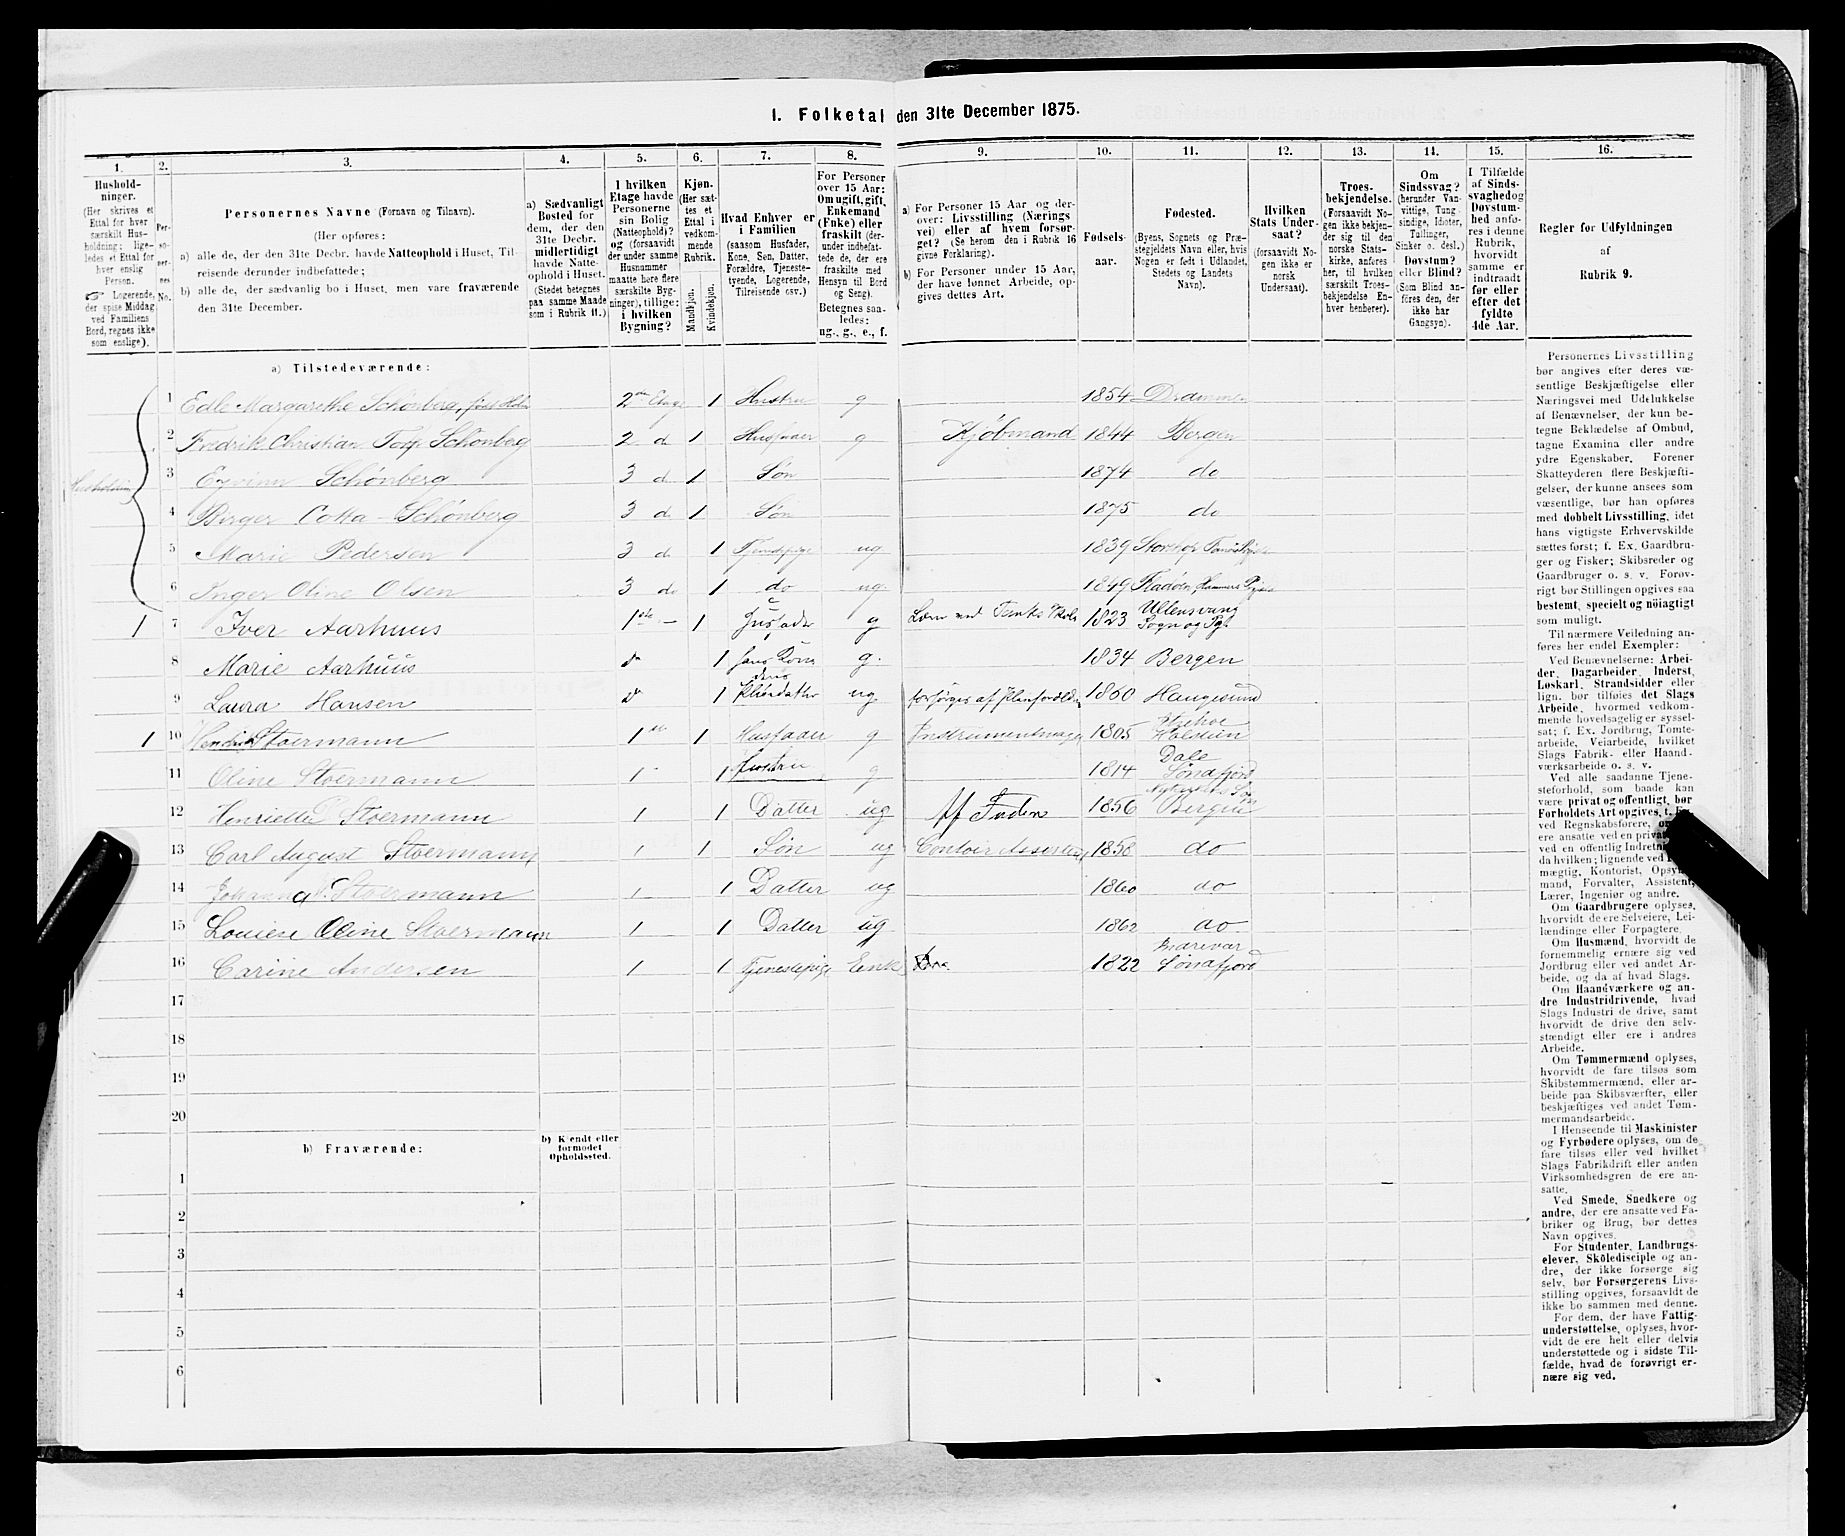 1. Folketal den 31te December 1875.
1. 2. 3. 4. 5. 6. 7. 8. 9. 10. 11. 12. 13. 14. 15. 16.
Hushold-
ninger.
(Her skrives et
Ettal for hver
særskilt Hus-
holdning; lige-
ledes et Ettal for
hver enslig
Person.
Logerende,
der spise Middag
ved Familiens
Bord, regnes ikke
som enslige).
Per-
so-
ner-
nes
No.
Personernes Navne (Fornavn og Tilnavn).
(Her opføres:
a) alle de, der den 31te Decbr. havde Natteophold i Huset, Til-
reisende derunder indbefattede;
b) alle de, der sædvanlig bo i Huset, men vare fraværende
den 31te December.
a) Sædvanligt
Bosted for
dem, der den
31te Decbr.
midlertidigt
havde Natte-
ophold i Huset.
(Stedet betegnes
paa samme Maade
som i Rubrik 11.)
I hvilken
Etage havde
Personerne
sin Bolig
(Natteophold)?
og (forsaavidt
der under samme
Husnummer
maatte høre flere
særskilte Byg-
ninger), tillige:
i hvilken
Bygning?
Kjøn.
(Her sæt-
tes et
Ettal i
vedkom-
mende
Rubrik.
Mandkjøn.
Kvindekjøn.
Hvad Enhver er
i Familien
(saasom Husfader,
Kone, Søn, Datter,
Forældre, Tjeneste-
tyende, Logerende,
Tilreisende osv.)
For Personer
over 15 Aar:
Om ugift, gift,
Enkemand
(Enke) eller
fraskilt (der-
under indbefat-
tede de, der ere
fraskilte med
Hensyn til Bord
og Seng).
Betegnes saa-
ledes:
ug., g., e., f.
a) For Personer over 15 Aar og der-
over: Livsstilling (Nærings
vei) eller af hvem forsør-
get? (Se herom den i Rubrik 16
givne Forklaring).
b) For Personer under 15 Aar,
der have lønnet Arbeide, op-
gives dettes Art.
Fødsels-
aar.
Fødested.
(Byens, Sognets og Præ-
stegjeldets Navn eller, hvis
Nogen er født i Udlandet,
Stedets og Landets
Navn).
Hvilken
Stats Under-
saat?
(forsaavidt No-
gen ikke er
norsk
Undersaat).
Troes-
bekjendelse.
(Forsaavidt No-
gen ikke bekjen-
der sig til den
norske Stats-
kirke, anføres
her, til hvilken
særskilt Troes-
bekjendelse En-
hver henhører).
Om
Sindssvag?
(herunder Van-
vittige, Tung-
sindige, Idioter,
Tullinger,
Sinker o. desl.)
Døvstum?
eller Blind?
(Som Blind an-
føres den, der
ikke har
Gangsyn).
I Tilfælde
af Sinds-
svaghed og
Døvstum-
hed anfø-
res i denne
Rubrik,
hvorvidt
samme er
indtraadt
før eller
efter det
fyldte
4de Aar.
Regler for Udfyldningen
af
Rubrik 9.
a) Tilstedeværende:
1 Edle Margarethe Schønberg, født 2den Etage 1 Hustru g 1854 Drammen
2 Fredrik Christian Torp Schønberg 2 d 1 Husfader g Kjøbmand 1844 Bergen
3 Eyvinn Schønberg 3 d 1 Søn 1874 do
4 Birger Cotta Schønberg 3 d 1 Søn 1875 do
5 Marie Pedersen 3 d 1 Tjenstpige ug 1839
6 Inger Oline Olsen 3 do 1 do ug. 1849
1 7 Iver Aarhuus 1ste – 1 Husfader g 1823 Ullensvang
Sogn og Pgl.
8 Marie Aarhuus do 1 hans Kone g. 1834 Bergen
9 Laura Hansen do 1 deres
Pleiedatter ug forsørges af Pleieforældre 1860 Haugesund
1 10 Hendrik Stoermann 1ste 1 Husfader g Instrumentmager 1805 Itzehoe
Holstein
11 Oline Stoermann 1 1 Hustru g 1814 Dale
Søndfjord
12 Henriette Stoermann 1 1 Datter ug Af Faderen 1856 Bergen
13 Carl August Stoermann 1 1 Søn ug Contoir Assistent 1858 do
14 Johanna Stoermann 1 1 Datter ug 1860 do
15 Louise Oline Stoermann 1 1 Datter ug 1862 do
16 Carine Andersen 1 1 Tjenestepige Enke 1822 Søndfjord
17
18
19
20
b) Fraværende:
b) Kjendt eller
formodet
Opholdssted.
1
2
3
4
5
6
Personernes Livsstilling
bør angives efter deres væ-
sentlige Beskjæftigelse eller
Næringsvei med Udelukkelse
af Benævnelser, der kun be-
tegne Beklædelse af Ombud,
tagne Examina eller andre
ydre Egenskaber. Forener
Skatteyderen flere Beskjæfti-
gelser, der kunne ansees som
væsentlige, bør han opføres
med dobbelt Livsstilling, idet
hans vigtigste Erhvervskilde
sættes først; f. Ex. Gaardbru-
ger og Fisker; Skibsreder og
Gaardbruger o. s. v. Forøv-
rigt bør Stillingen opgives saa
bestemt, specielt og nöiagtigt
som muligt.
Til nærmere Veiledning an-
føres her endel Exempler:
Ved Benævnelserne: Arbei-
der, Dagarbeider, Inderst,
Løskarl, Strandsidder eller
lign. bør tilføies det Slags
Arbeide, hvormed vedkom-
mende hovedsagelig er syssel-
sat; f. Ex. Jordbrug, Tomte-
arbeide, Veiarbeide, hvilket
Slags Fabrik- eller Haand-
værksarbeide o. s. v.
Ved alle saadanne Tjene-
steforhold, som baade kan
være privat og offentligt, bør
Forholdets Art opgives, t. Ex.
ved Regnskabsførere,
ere ansatte ved en privat
ved en offentlig Indretning
da hvilken; lignende ved
mægtig, Kontorist, Opsyns-
mand, Forvalter, Assistent,
Lærer, Ingeniør og andre.
Om Gaardbrugere oplyses,
hvorvidt de ere Selveiere, Lei-
lændinge eller Forpagtere.
Om Husmænd, hvorvidt de
fornemmelig ernære sig ved
Jordbrug eller ved andet Ar-
beide, og da af hvad Slags.
Om Haandværkere og an-
dre Industridrivende, hvad
Slags Industri de drive, samt
hvorvidt de drive den selv-
stændigt eller ere i andres
Arbeide.
Om Tømmermænd oplyses,
hvorvidt de fare tilsøs som
Skibstømmermænd, eller ar-
beide paa Skibsværfter, eller
beskjæftiges ved andet Tøm-
mermandsarbeide.
I Henseende til Maskinister
og Fyrbødere oplyses, om de
fare tilsøs eller ved hvilket
Slags Fabrikdrift eller anden
Virksomhedsgren de ere an-
satte.
Ved Smede, Snedkere og
andre, der ere ansatte ved Fa-
briker og Brug, bør dettes
Navn opgives.
For Studenter, Landbrugs-
elever, Skoledisciple og an-
dre, der ikke forsørge sig
selv, bør Forsørgerens Livs-
stilling opgives, forsaavidt de
ikke bo sammen med denne.
For dem, der have Fattig-
understøttelse, oplyses, hvor-
vidt de ere helt eller delvis
understøttede og i sidste Til-
fælde, hvad de forøvrigt er-
nære sig ved.